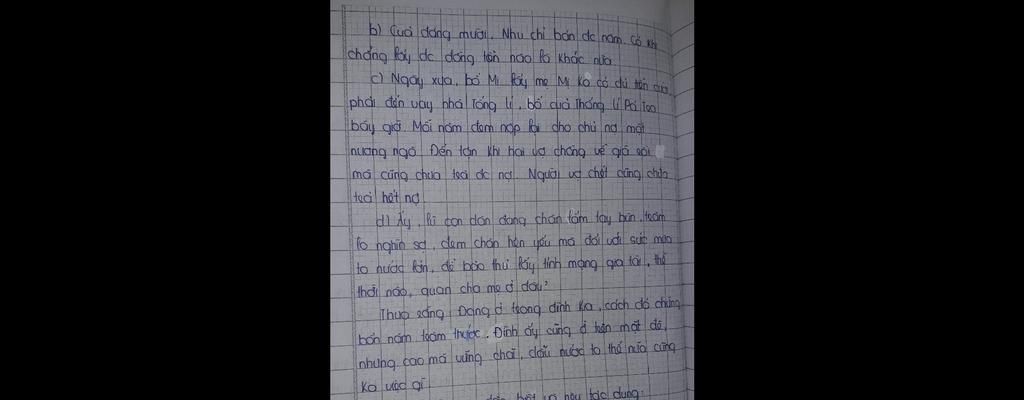 b) Của đáng mười, Nhu chỉ bán đc năm. Có khi
chẳng lấy đc đồng tiền nào là khác nữa
c) Ngày xưa, bố Mị lấy mẹ Mị ko có đủ tiền cưới
phải đến vay nhà Tống lí, bố của Thống lí Pá Tra
bây giờ. Mỗi năm đem nộp lãi cho chủ nợ một
nương ngô. Đến tận khi hai vợ chồng về già rồi
mà cũng chưa trả đc nợ. Người vợ chết cũng chưa
trả hết nợ
d) Ấy, lũ con dân đang chân lấm tay bùn, trăm
lo nghìn sợ, đem thân hèn yếu mà đối với sức mưa
to nước lớn, để bảo thủ lấy tính mạng gia tài, thế
thời nào, quan cha mẹ ở đâu?
Thưa rằng: Đang ở trong đình kia, cách đó chừng
bốn năm trăm thước. Đình ấy cũng ở trên mặt đê,
nhưng cao mà vững chãi, dẫu nước to thế nữa cũng
ko việc gì
tác dụng: